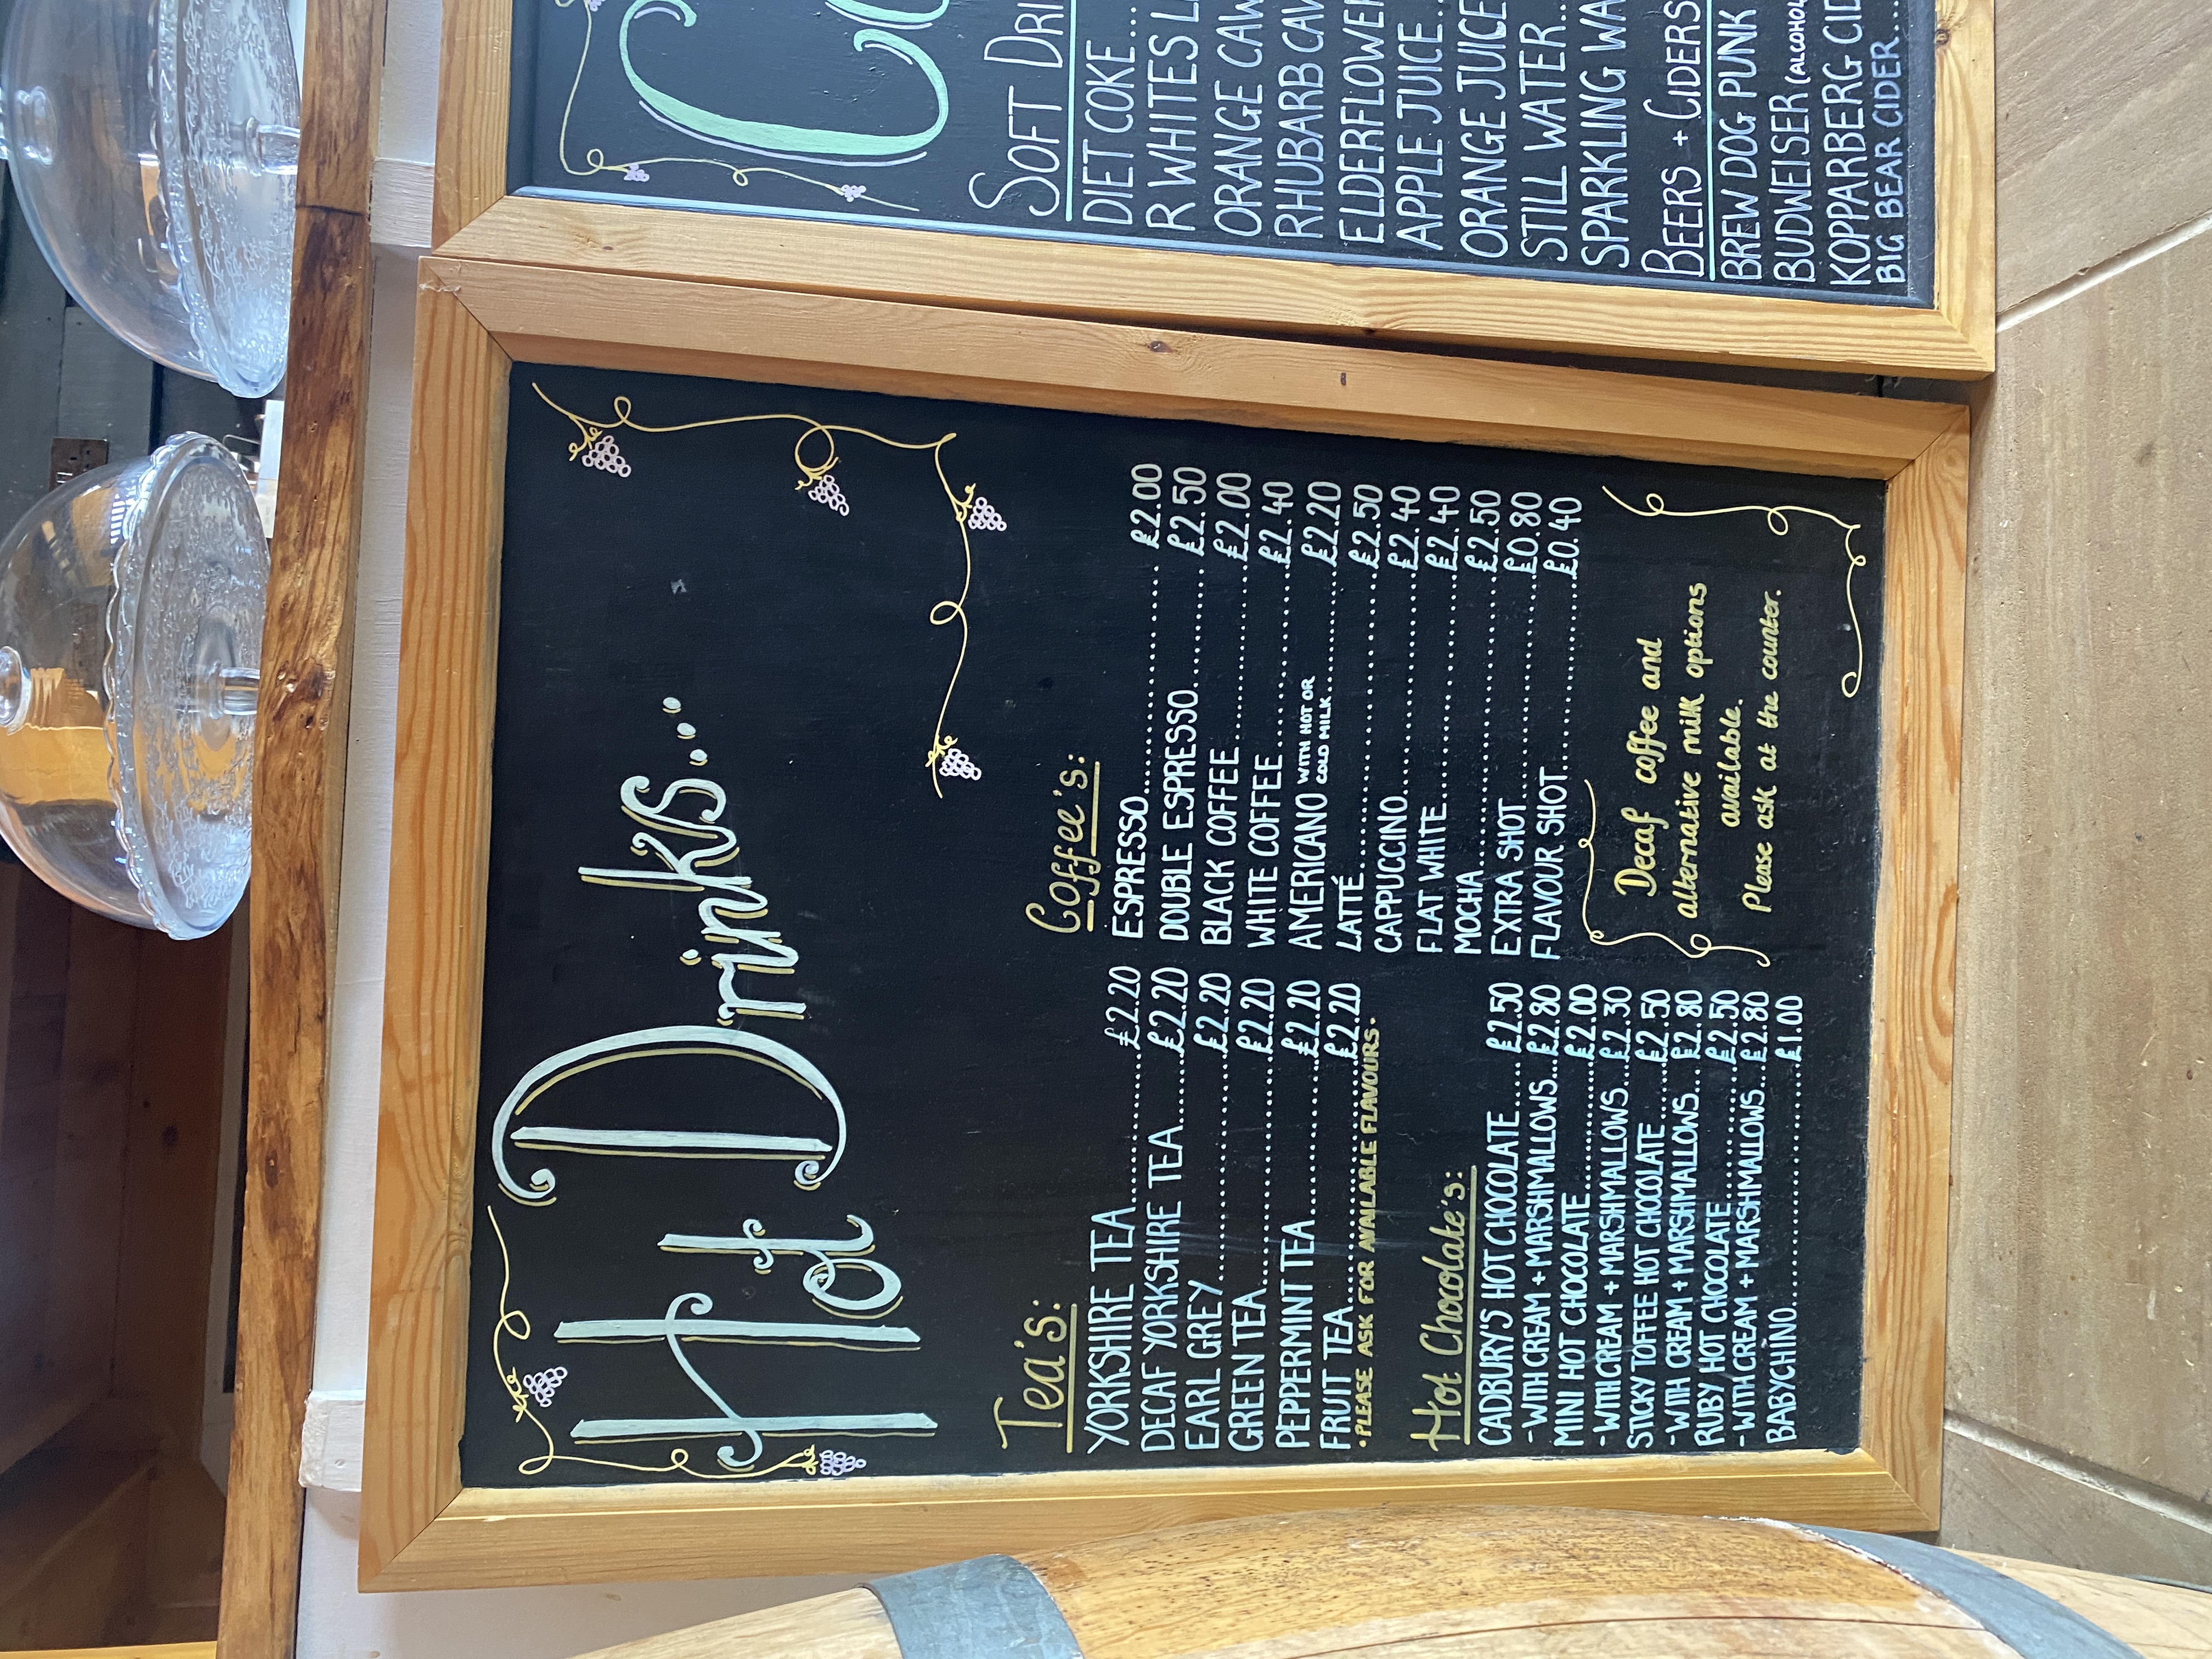 Hot Drinks...
Tea's:
YORKSHIRE TEA...............£2.20
DECAF YORKSHIRE TEA.......£2.20
EARL GREY......................£2.20
GREEN TEA.......................£2.20
PEPPERMINT TEA...............£2.20
FRUIT TEA........................£2.20
•PLEASE ASK FOR AVAILABLE FLAVOURS•
Hot Chocolate's:
CADBURY'S HOT CHOCOLATE.....£2.50
-WITH CREAM + MARSHMALLOWS...£2.80
MINI HOT CHOCOLATE.............£2.00
-WITH CREAM + MARSHMALLOWS...£2.30
STICKY TOFFEE HOT CHOCOLATE.......£2.50
-WITH CREAM + MARSHMALLOWS...£2.80
RUBY HOT CHOCOLATE..............£2.50
-WITH CREAM + MARSHMALLOWS...£2.80
BABYCHINO.........................£1.00
Coffee's:
ESPRESSO........................£2.00
DOUBLE ESPRESSO............£2.50
BLACK COFFEE..................£2.00
WHITE COFFEE..................£2.40
AMERICANO WITH HOT OR COLD MILK.............£2.20
LATTÉ..............................£2.50
CAPPUCCINO.....................£2.40
FLAT WHITE......................£2.40
MOCHA.............................£2.50
EXTRA SHOT......................£0.80
FLAVOUR SHOT...................£0.40
Decaf coffee and
alternative milk options
available.
Please ask at the counter.
SOFT
DIET COKE...
R WHITES
ORANGE
RHUBARB
APPLE JUICE..
ORANGE JUICE
STILL WATER..
SPARKLING
BEERS + CIDERS
BREW DOG PUNK
BUDWEISER
KOPPARBERG
BIG BEAR CIDER...